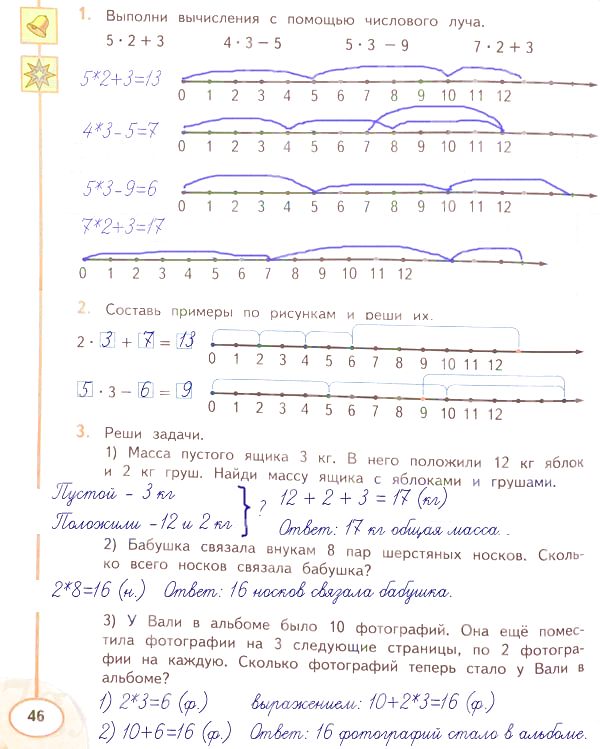 1. Выполни вычисления с помощью числового луча.
5 · 2 + 3 4 · 3 – 5 5 · 3 – 9 7 · 2 + 3
5*2+3=13
0 1 2 3 4 5 6 7 8 9 10 11 12
4*3-5=7
0 1 2 3 4 5 6 7 8 9 10 11 12
5*3-9=6
0 1 2 3 4 5 6 7 8 9 10 11 12
7*2+3=17
0 1 2 3 4 5 6 7 8 9 10 11 12
2. Составь примеры по рисункам и реши их.
2 · 3 + 7 = 13
0 1 2 3 4 5 6 7 8 9 10 11 12
5 · 3 – 6 = 9
0 1 2 3 4 5 6 7 8 9 10 11 12
3. Реши задачи.
1) Масса пустого ящика 3 кг. В него положили 12 кг яблок
и 2 кг груш. Найди массу ящика с яблоками и грушами.
Пустой - 3 кг
Положили -12 и 2 кг
? 12 + 2 + 3 = 17 (кг)
Ответ: 17 кг общая масса. .
2) Бабушка связала внукам 8 пар шерстяных носков. Сколь-
ко всего носков связала бабушка?
2*8=16 (н.) Ответ: 16 носков связала бабушка.
3) У Вали в альбоме было 10 фотографий. Она ещё помес-
тила фотографии на 3 следующие страницы, по 2 фотогра-
фии на каждую. Сколько фотографий теперь стало у Вали в
альбоме?
1) 2*3=6 (ф.) выражением: 10+2*3=16 (ф.)
2) 10+6=16 (ф.) Ответ: 16 фотографий стало в альбоме.
46